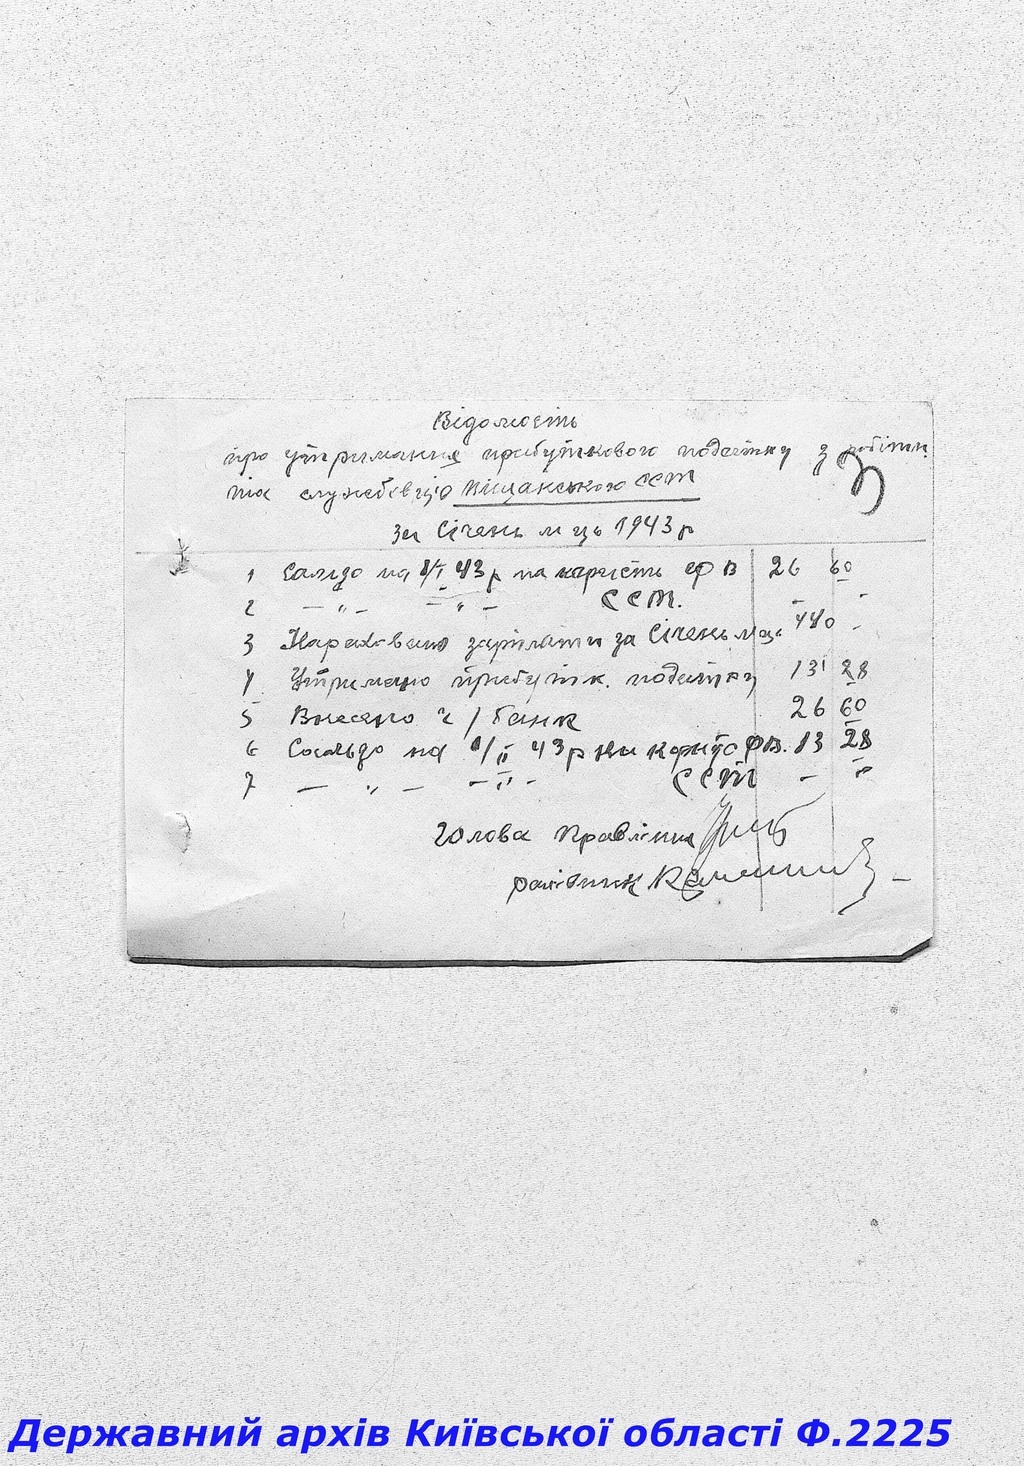 Відомость
про утримання прибуткового податку з робітн.
та службовців Піщанського ССТ
3
за Січень м-ць 1943 р
1 Сальдо на 1/I 43 р на користь ФВ 26 60
2 — " — — " — ССТ. - -
3 Нараховано зарплати за Січень м-ць 440 -
4 Утримано прибутк. податку 13 28
5 Внесено ч/банк 26 60
6 Сальдо на 1/II 43 р на користь ФВ. 13 28
7 — " — — " — ССТ - -
Голова Правління
рахівник
Державний архів Київської області Ф.2225